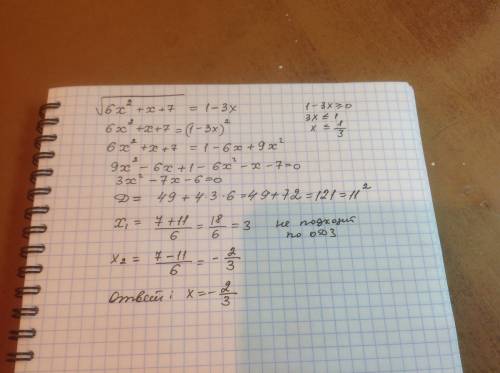 √(6x² + x + 7) = 1 - 3x
1 - 3x ≥ 0
3x ≤ 1
x ≤ 1/3
6x² + x + 7 = (1 - 3x)²
6x² + x + 7 = 1 - 6x + 9x²
9x² - 6x + 1 - 6x² - x - 7 = 0
3x² - 7x - 6 = 0
D = 49 + 4·3·6 = 49 + 72 = 121 = 11²
x₁ = (7 + 11)/6 = 18/6 = 3 не подходит
по ОДЗ
x₂ = (7 - 11)/6 = - 2/3
Ответ: x = - 2/3